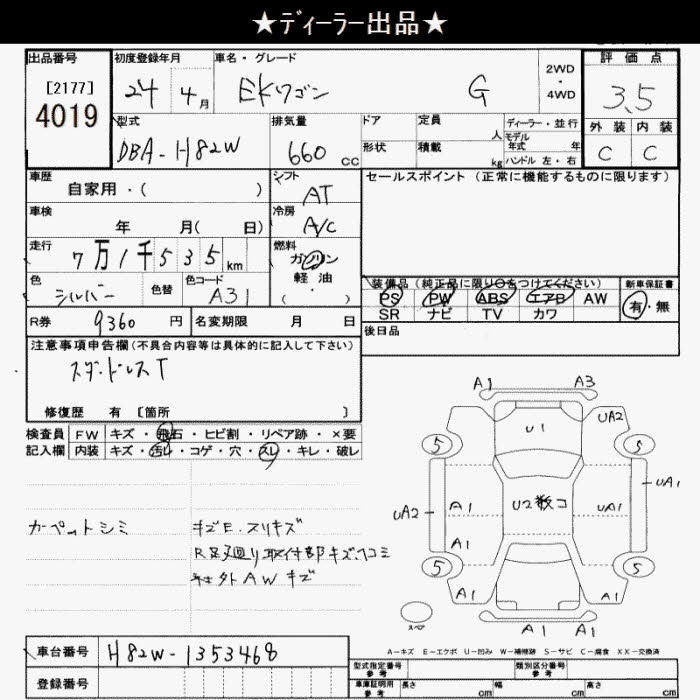 ★ディーラー出品★
出品番号
[2177]
4019
初度登録年月
24 4月
車名・グレード
EKワゴン G
2WD
・
4WD
評価点
3.5
外装 内装
C C
型式
DBA-H82W
排気量
660 cc
ドア
形状
定員 人
積載 kg
ディーラー・並行
モデル
年式 年
ハンドル 左・右
車歴
自家用・( )
シフト
AT
セールスポイント (正常に機能するものに限ります)
車検
年 月( 日)
冷房
A/C
走行
7万1千535km
燃料
ガソリン
軽油
( ・ )
色
シルバー
色替
色コード
A31
装備品 (純正品に限り○をつけてください)
PS PW ABS エアB AW
SR ナビ TV カワ
新車保証書
有・無
R券 9360 円
名変期限 月 日
後日品
注意事項申告欄(不具合内容等は具体的に記入して下さい)
スタッドレスT
修復歴 有 [箇所 ]
検査員
記入欄
FW キズ・飛石・ヒビ割・リペア跡・×要
内装 キズ・汚れ・コゲ・穴・スレ・キレ・破レ
カーペットシミ
キズE.スリキズ
R足廻り取付部キズ、ヘコミ
社外AWキズ
A1 A3
U1 UA2
5 5
A1 UA1 UA1
UA2 U2数コ
A1
5 5
A1 A1
スペア
A1 A1
A-キズ E-エクボ U-凹み W-補修跡 S-サビ C-腐食 XX-交換済
車台番号 H82W-1353468
登録番号
型式指定番号
参考
類別区分番号
参考
車庫証明用
参考
長さ cm 幅 cm 高さ cm